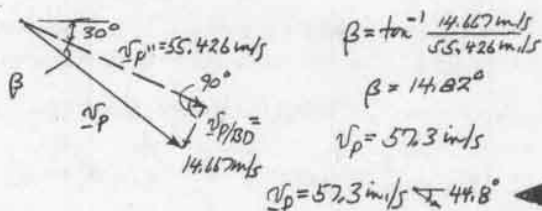 30°
v_P'' = 55.426 in/s
β
90°
v_P
v_P/BD =
14.667 in/s
β = tan⁻¹ 14.667 in/s / 55.426 in/s
β = 14.82°
v_P = 57.3 in/s
v_P = 57.3 in./s ⦪ 44.8°